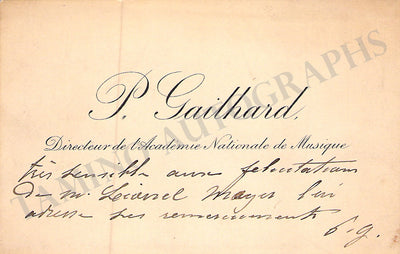 P. Gailhard,
Directeur de l'Académie Nationale de Musique
très sensible aux felicitations
de M. Lionel Mayer l'en
adresse ses remerciements
P. G.
TAMINO AUTOGRAPHS